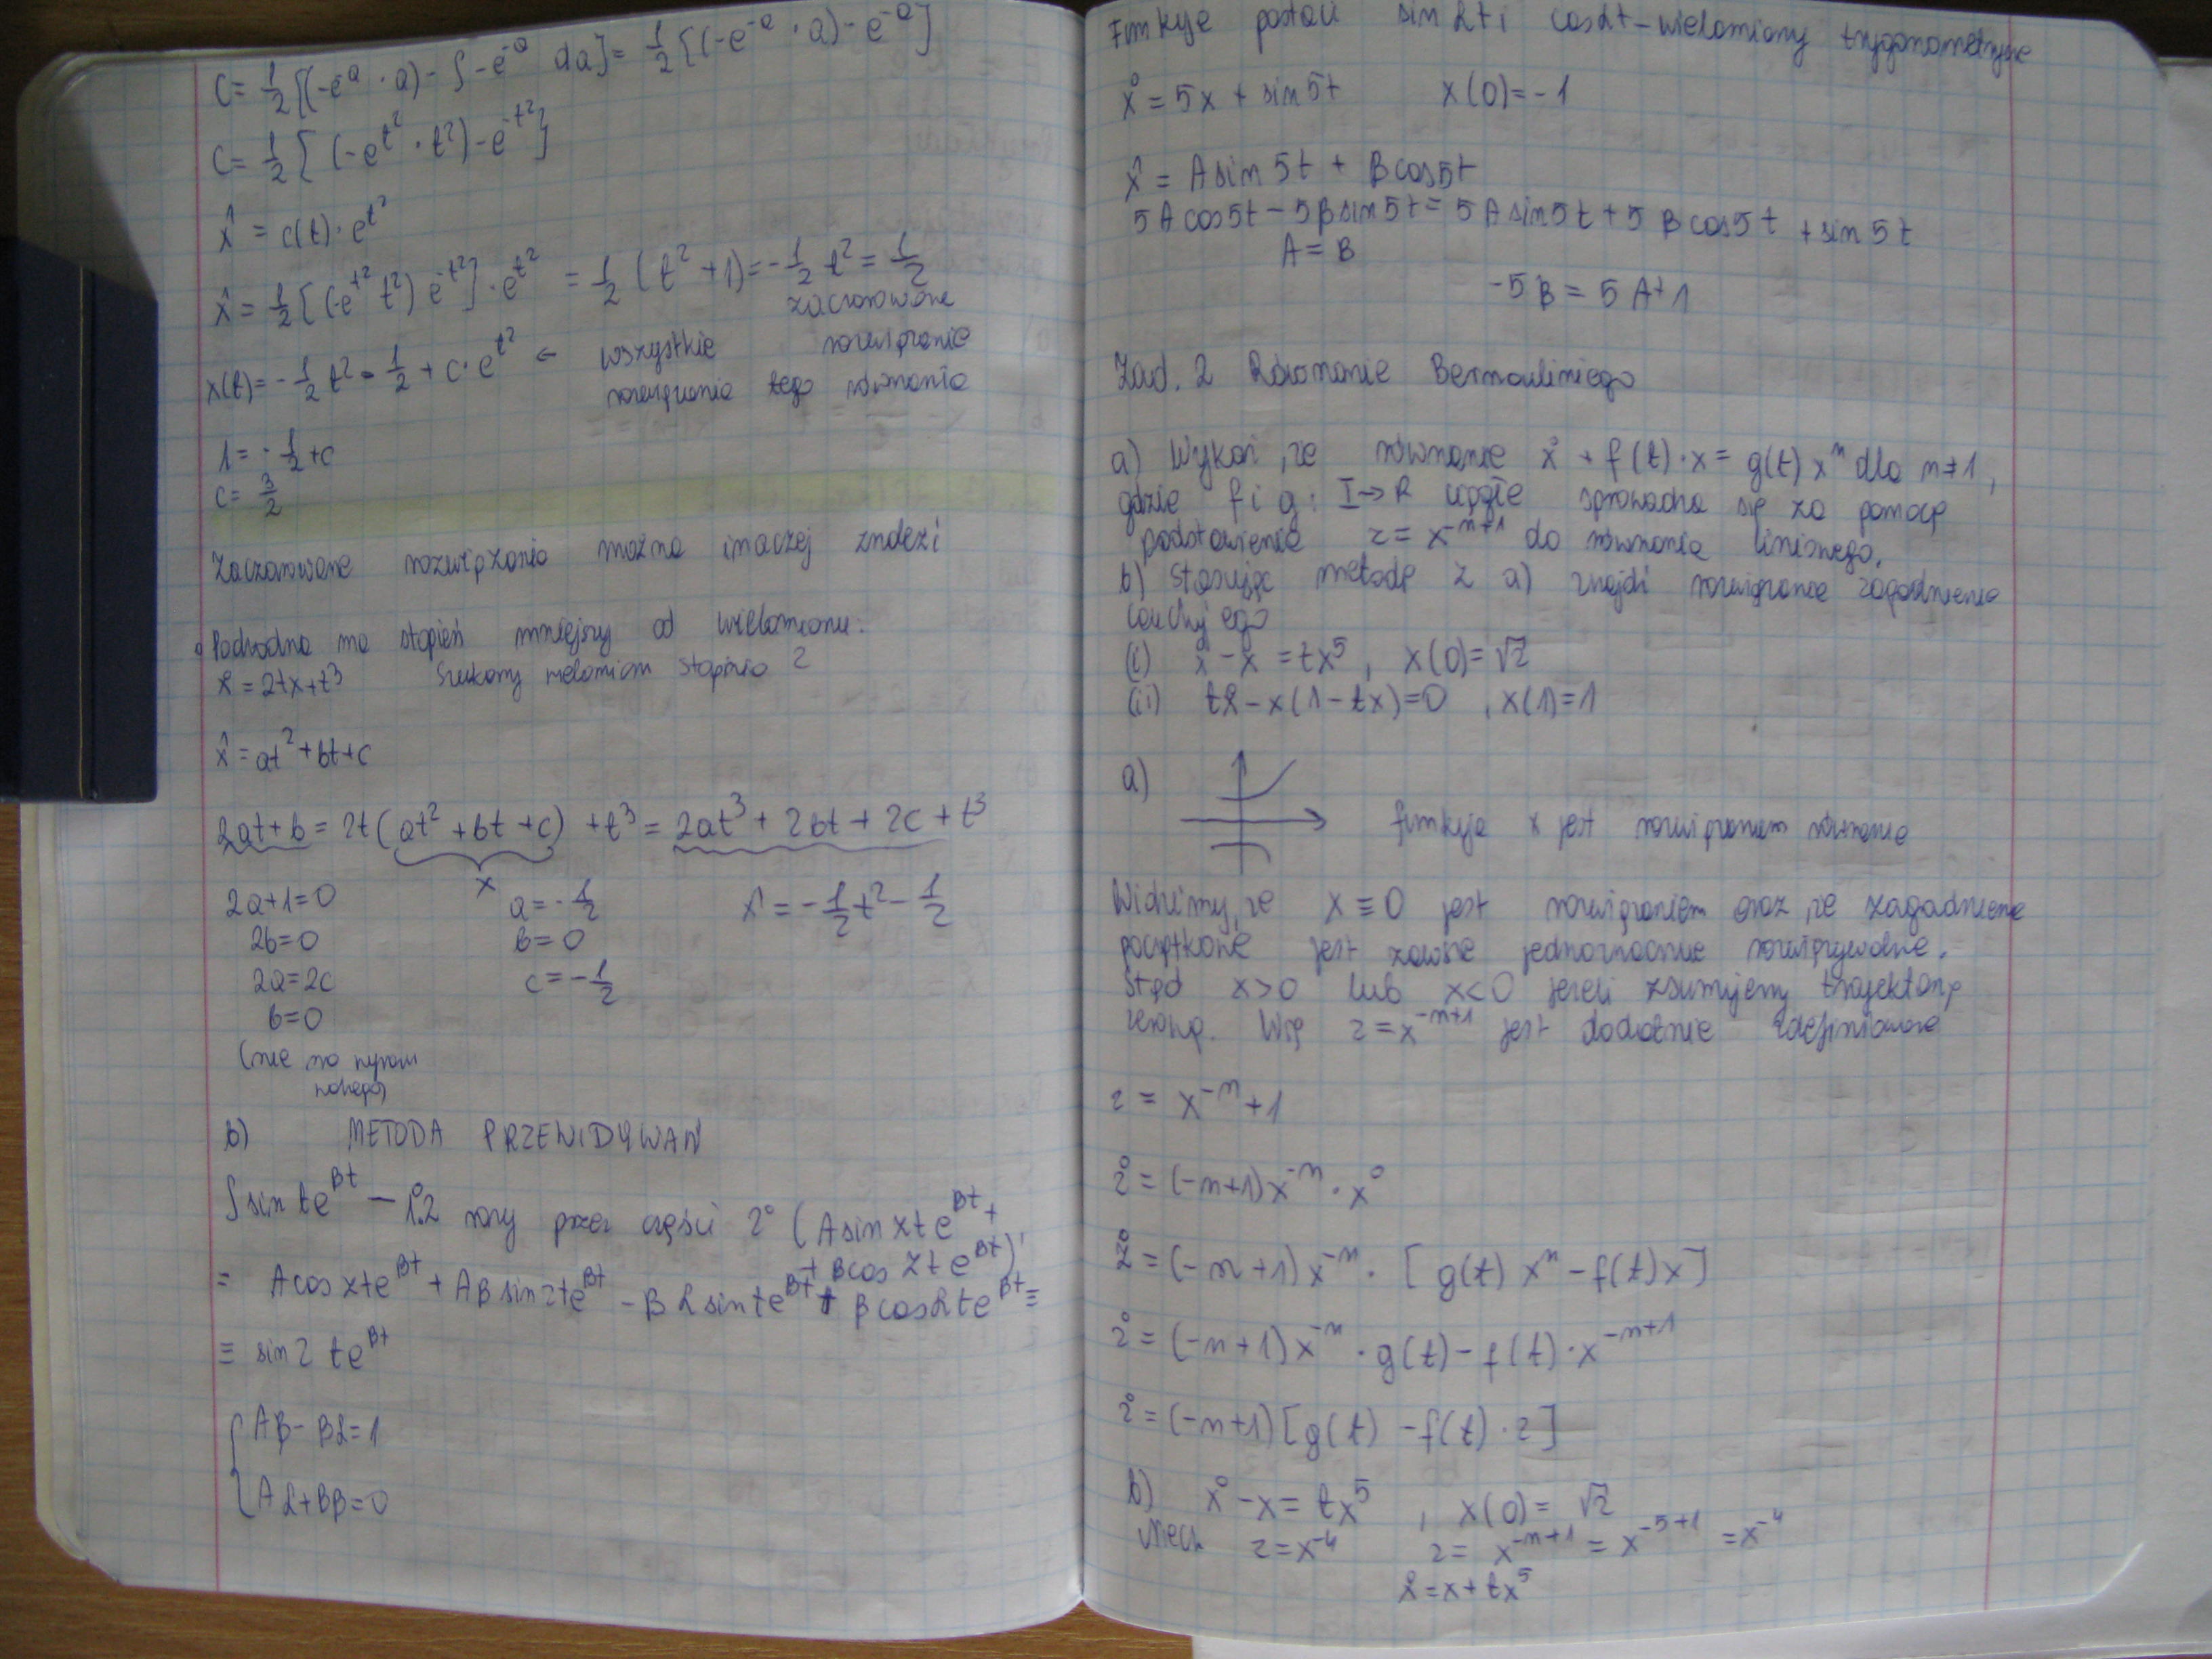 C = 1/2 [(-e^a · a) - ∫ -e^-a da] = 1/2 [(-e^-a · a) - e^-a]
C = 1/2 [(-e^t² · t²) - e^-t²]
x̂ = c(t) · e^t²
x̂ = 1/2 [(-e^t² t²) e^-t²] · e^t² = 1/2 (t² + 1) = -1/2 t² = 1/2
zaczarowane rozwiązanie
x(t) = -1/2 t² - 1/2 + c · e^t² ← wszystkie
rozwiązania tego równania
1 = -1/2 + c
c = 3/2
Zaczarowane rozwiązania można inaczej znaleźć
Pochodna ma stopień mniejszy od wielomianu.
ẋ = 2tx + t³ Szukamy wielomian stopnia 2
x̂ = at² + bt + c
2at + b = 2t (at² + bt + c) + t³ = 2at³ + 2bt + 2c + t³
x
2a + 1 = 0 a = -1/2 x̂ = -1/2 t² - 1/2
2b = 0 b = 0
2a = 2c c = -1/2
b = 0
(nie ma wyrazu
wolnego)
b) METODA PRZEWIDYWAŃ
∫ sin t e^βt - 1° 2 razy przez części 2° (A sin αt e^βt +
+ B cos αt e^βt)'
= A cos αt e^βt + Aβ sin αt e^βt - Bα sin t e^βt + β cos αt e^βt ≡
≡ sin α t e^βt
{ Aβ - Bα = 1
Aα + Bβ = 0
Funkcje postaci sin αt i cos αt - wielomiany trygonometryczne
ẋ = 5x + sin 5t x(0) = -1
x̂ = A sin 5t + B cos 5t
5A cos 5t - 5B sin 5t = 5A sin 5t + 5B cos 5t + sin 5t
A = B
-5B = 5A + 1
Zad. 2 Równanie Bernouliniego
a) Wykaż, że równanie ẋ + f(t) · x = g(t) x^n dla n ≠ 1,
gdzie f i g : I → R ciągłe sprowadza się za pomocą
podstawienia z = x^-n+1 do równania liniowego.
b) Stosując metodę z a) znajdź rozwiązanie zagadnienia
Cauchy'ego
(i) ẋ - x = tx⁵, x(0) = √2
(ii) tẋ - x(1 - tx) = 0, x(1) = 1
a)
funkcja x jest rozwiązaniem równania
Widzimy, że x ≡ 0 jest rozwiązaniem oraz, że zagadnienie
początkowe jest zawsze jednoznacznie rozwiązywalne.
Stąd x > 0 lub x < 0 jeżeli zsumujemy trajektorię
zerową. Więc z = x^-n+1 jest dodatnie zdefiniowane
z = x^-n + 1
ż = (-n+1) x^-n · ẋ
ż = (-n+1) x^-n · [g(t) x^n - f(t) x]
ż = (-n+1) x^-n · g(t) - f(t) · x^-n+1
ż = (-n+1) [g(t) - f(t) · z]
b) ẋ - x = tx⁵, x(0) = √2
Niech z = x^-4 z = x^-n+1 = x^-5+1 = x^-4
ẋ = x + tx⁵